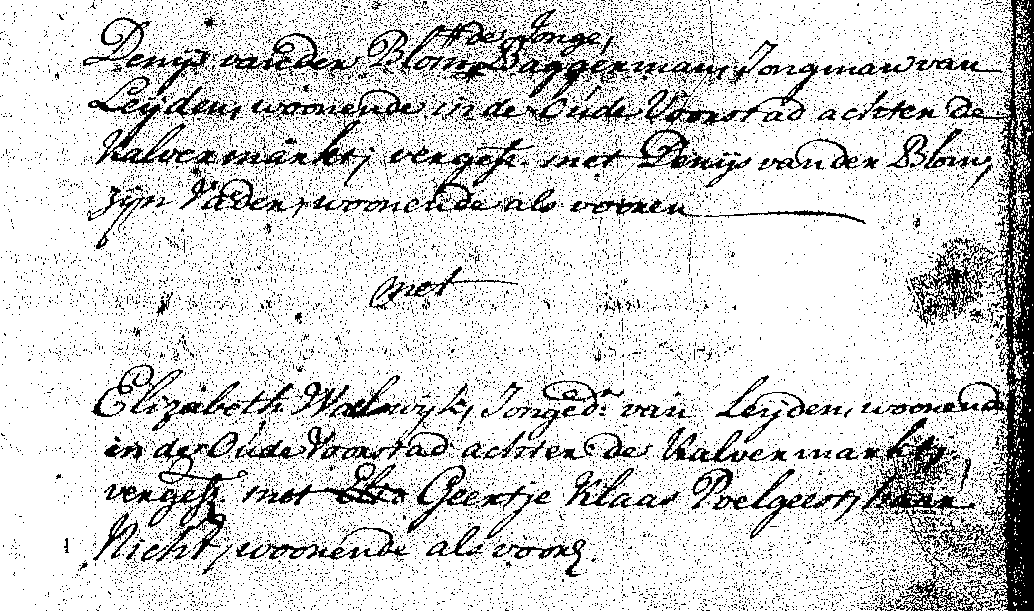 de Jonge,
Denijs van der Blom, Baggerman, Jongman van
Leijden, woonende in de Oude Voorstad achter de
Kalvermarkt, vergesz. met Denijs van der Blom,
zijn Vader, woonende als vooren
met
Elizabeth Waelwijk, Jonged.r van Leijden, woonende
in de Oude Voorstad achter de Kalvermarkt,
vergesz. met Geertje Klaas Poelgeest, haar
Nicht, woonende als voor.